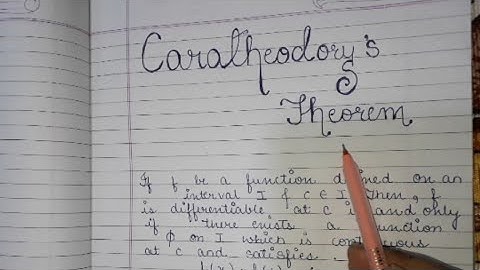 Caratheodory's
Theorem
If f be a function defined on an
interval I & c ∈ I. Then, f
is differentiable at c if and only
if there exists a function
ϕ on I which is continuous
at c and satisfies